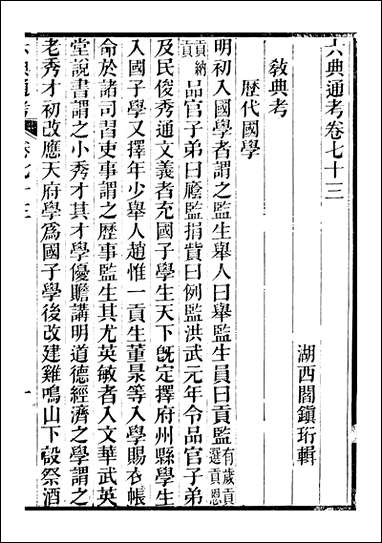 六典通考卷七十三
湖西閻鎮珩輯
敎典考
歷代國學
明初入國學者謂之監生舉人曰舉監生員曰貢監有歲貢選貢恩
貢納貢品官子弟曰廕監捐貲曰例監洪武元年令品官子弟
及民俊秀通文義者充國子學生天下旣定擇府州縣學生
入國子學又擇年少舉人趙惟一貢生董㬎等入學賜衣帳
命於諸司習吏事謂之歷事監生其尤英敏者入文華武英
堂說書謂之小秀才其才學優贍講明道德經濟之學謂之
老秀才初改應天府學爲國子學後改建雞鳴山下設祭酒
六典通考
卷七十三
一